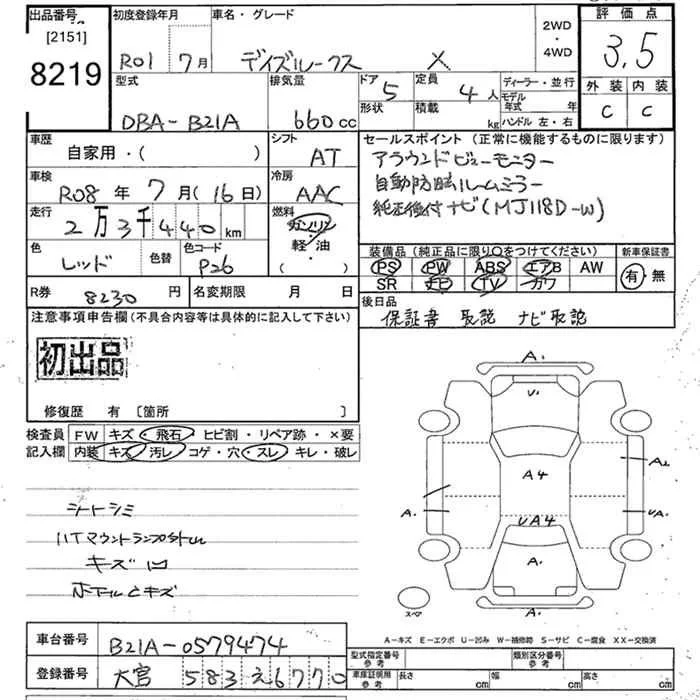 出品番号 初度登録年月 車名・グレード 2WD・4WD 評価点
[2151]
8219 R01 7月 デイズルークス X 3.5
型式 排気量 ドア 5 定員 4人 ディーラー・並行 外装 内装
形状 積載 kg モデル年式 年 C C
DBA-B21A 660cc ハンドル 左・右
車歴 シフト セールスポイント (正常に機能するものに限ります)
自家用・( ) AT アラウンドビューモニター
車検 冷房 自動防眩ルームミラー
R08年 7月(16日) AAC 純正後付ナビ(MJ118D-W)
走行 燃料
2万3千440km ガソリン
軽・油
( )
色 色替 色コード 装備品 (純正品に限り○をつけてください) 新車保証書
レッド P26 PS PW ABS エアB AW 有・無
SR ナビ TV カワ
R券 8230円 名変期限 月 日 後日品
保証書 取説 ナビ取説
注意事項申告欄 (不具合内容等は具体的に記入して下さい)
初出品
修復歴 有 〔箇所 〕
検査員記入欄 FW キズ・飛石・ヒビ割・リペア跡・×要
内装 キズ・汚レ・コゲ・穴・スレ・キレ・破レ
シートシミ
キズ凹
A.
U.
A4
A.
A2
UA4
UA.
A.
A.
スペア
A-キズ E-エクボ U-凹み W-補修跡 S-サビ C-腐食 XX-交換済
車台番号 B21A-0579474
登録番号 大宮 583 え 6770
型式指定番号 参考 類別区分番号 参考
車庫証明用 参考 長さ cm 幅 cm 高さ cm